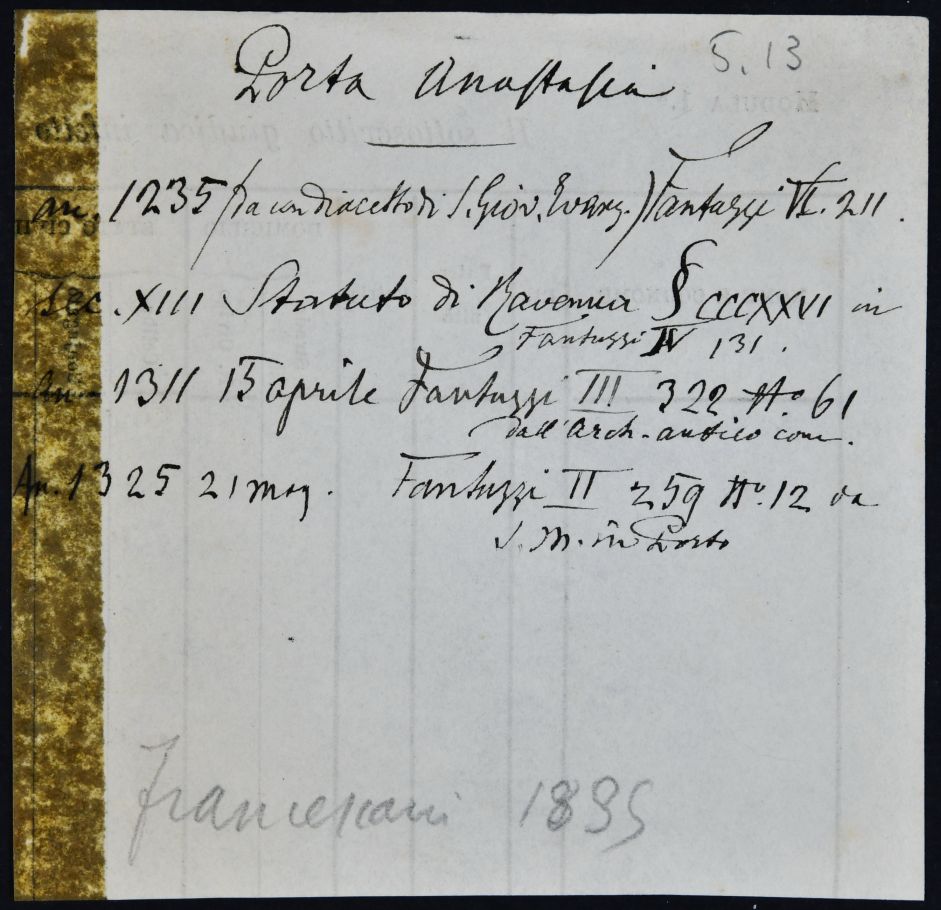 5.13
Porta Anastasia
an. 1235 (da un diacetto di S. Giov. Evang.) Fantuzzi VI. 211.
Sec. XIII Statuto di Ravenna § CCCXXVI in
Fantuzzi IV 131.
an. 1311 15 aprile Fantuzzi III 322 No. 61
dall'Arch. antico com.
An. 1325 21 mag. Fantuzzi II 259 No. 12 da
S. M. in Porto
Francescani 1895